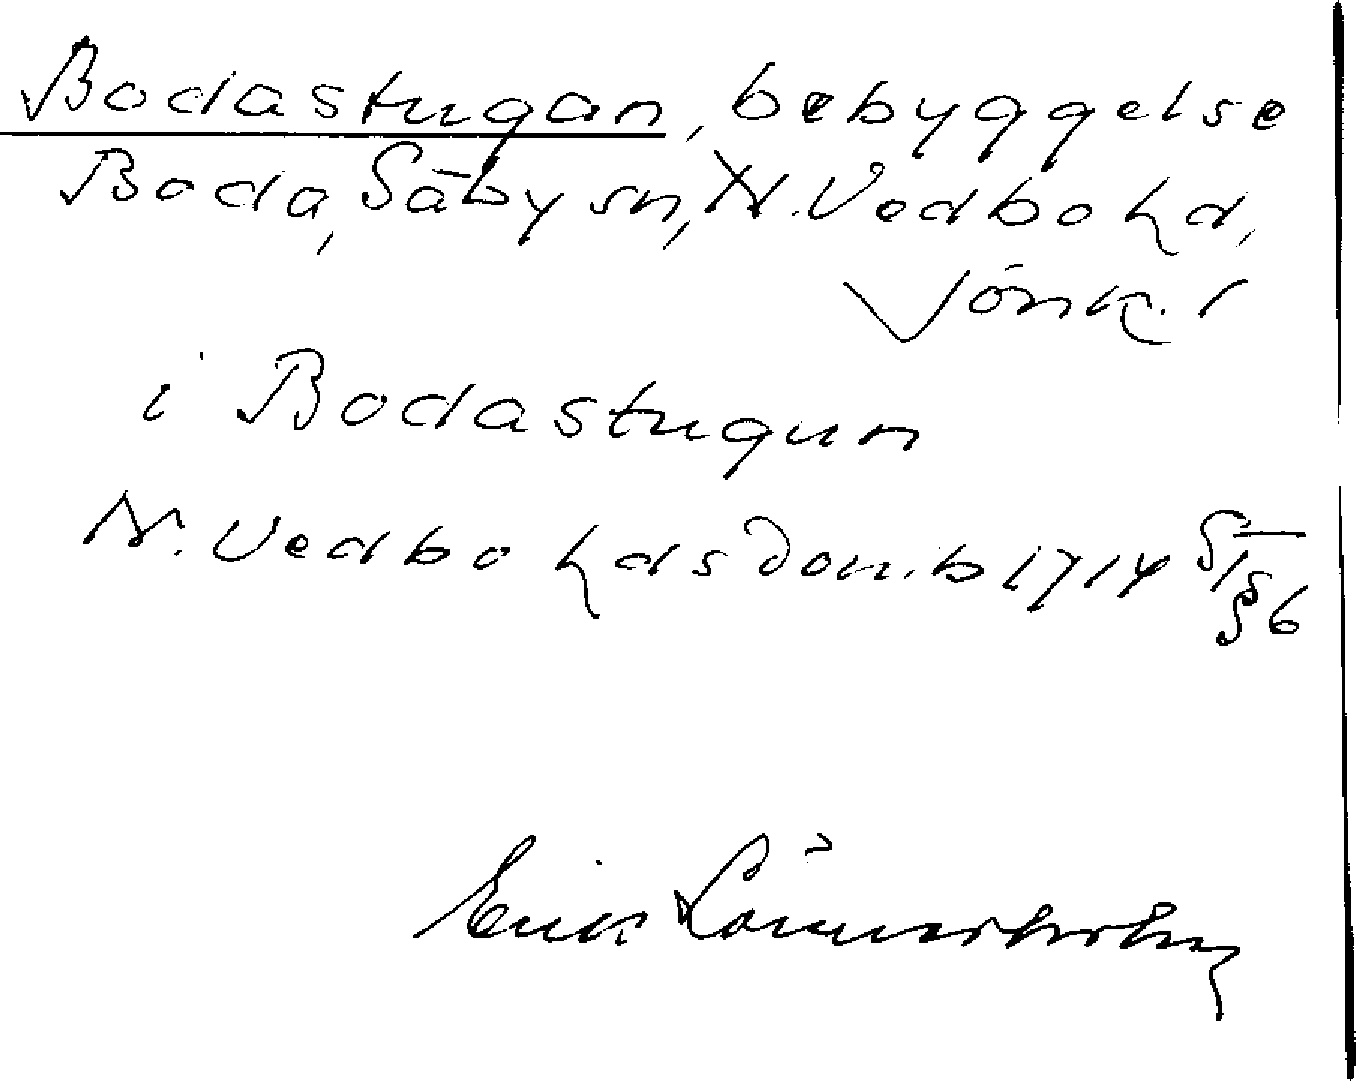 Bodastugan, bebyggelse
Boda, Säby sn, N. Vedbo hd,
Jönk. l
i Bodastugun
N. Vedbo hds Domb 1714 5/5
§ 6
Erik